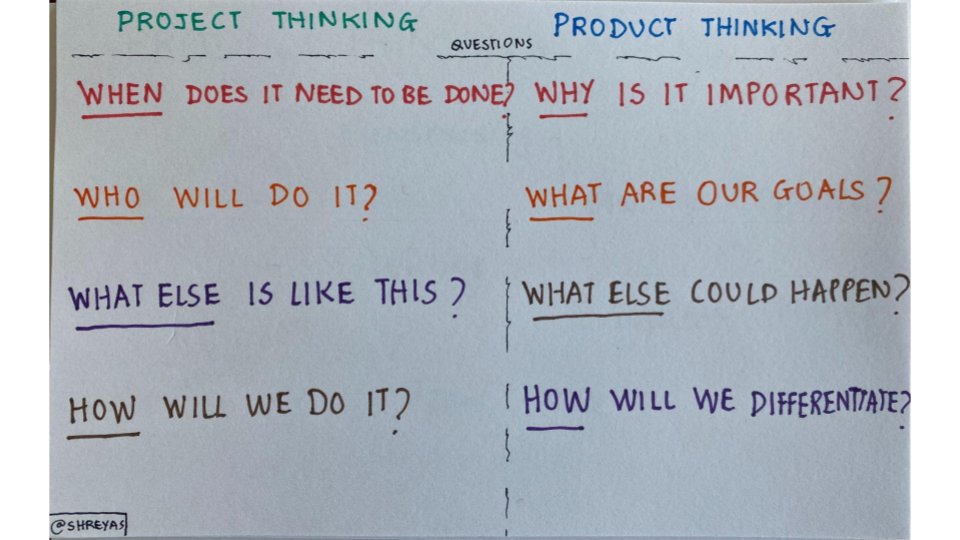 PROJECT THINKING
PRODUCT THINKING
QUESTIONS
WHEN DOES IT NEED TO BE DONE?
WHY IS IT IMPORTANT?
WHO WILL DO IT?
WHAT ARE OUR GOALS?
WHAT ELSE IS LIKE THIS?
WHAT ELSE COULD HAPPEN?
HOW WILL WE DO IT?
HOW WILL WE DIFFERENTIATE?
@SHREYAS